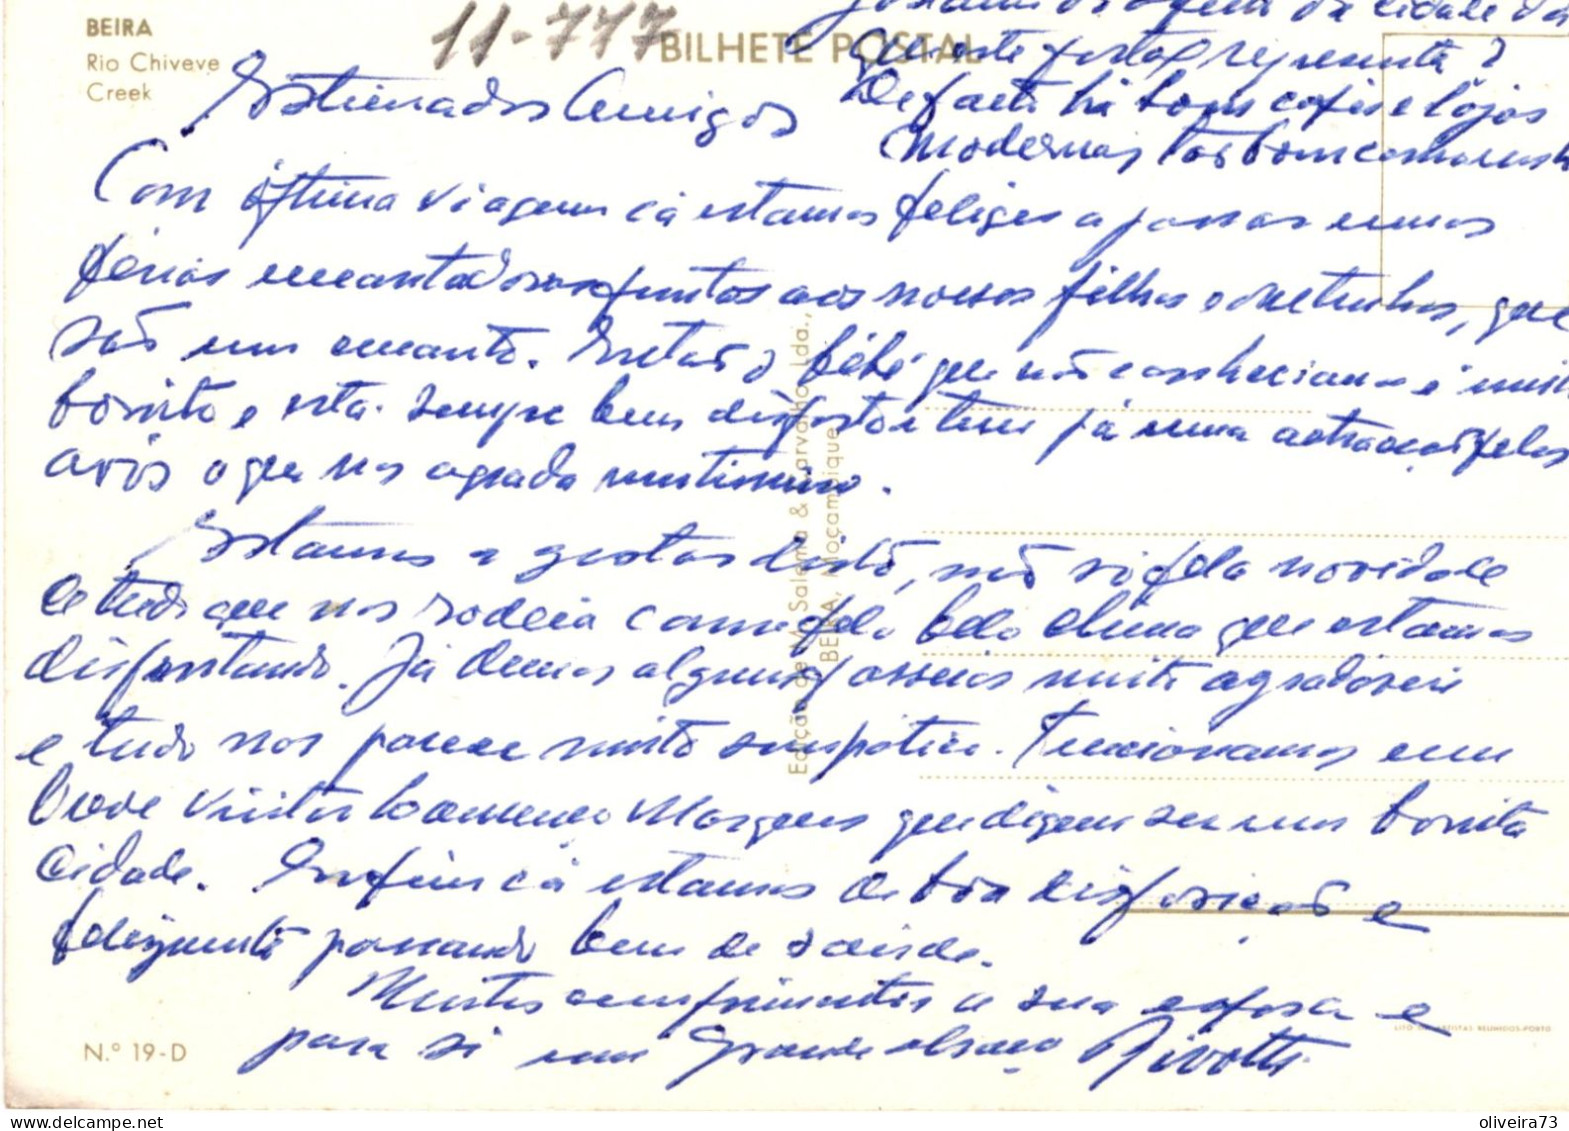 BEIRA
Rio Chiveve
Creek
11-777
BILHETE POSTAL
da cidade
que este postal representa?
De facto há bons cafés e lojas
Modernas tão bem como
Estimados Amigos
Com óptima viagem cá estamos felizes a passar umas
férias encantadoras juntos aos nossos filhos e netinhos, que
são um encanto. Então o bébé que não conheciamos é muito
bonito e está sempre bem disposto e tem já uma atracção pelos
avós o que nos agrada muitissimo.
Estamos a gostar disto, não só pela novidade
de tudo que nos rodeia como pelo belo clima que estamos
disfrutando. Já demos alguns passeios muito agradaveis
e tudo nos parece muito simpatico. Tencionamos em
breve visitar Lourenço Marques que dizem ser uma bonita
Cidade. Enfim cá estamos de boa disposição e
felizmente passando bem de saúde.
Muitos cumprimentos a sua esposa e
para si um grande abraço
Edição de M. Salema & Carvalho, Lda.,
BEIRA, Moçambique
N.º 19-D
LITO DE ARTISTAS REUNIDOS-PORTO
oliveira73